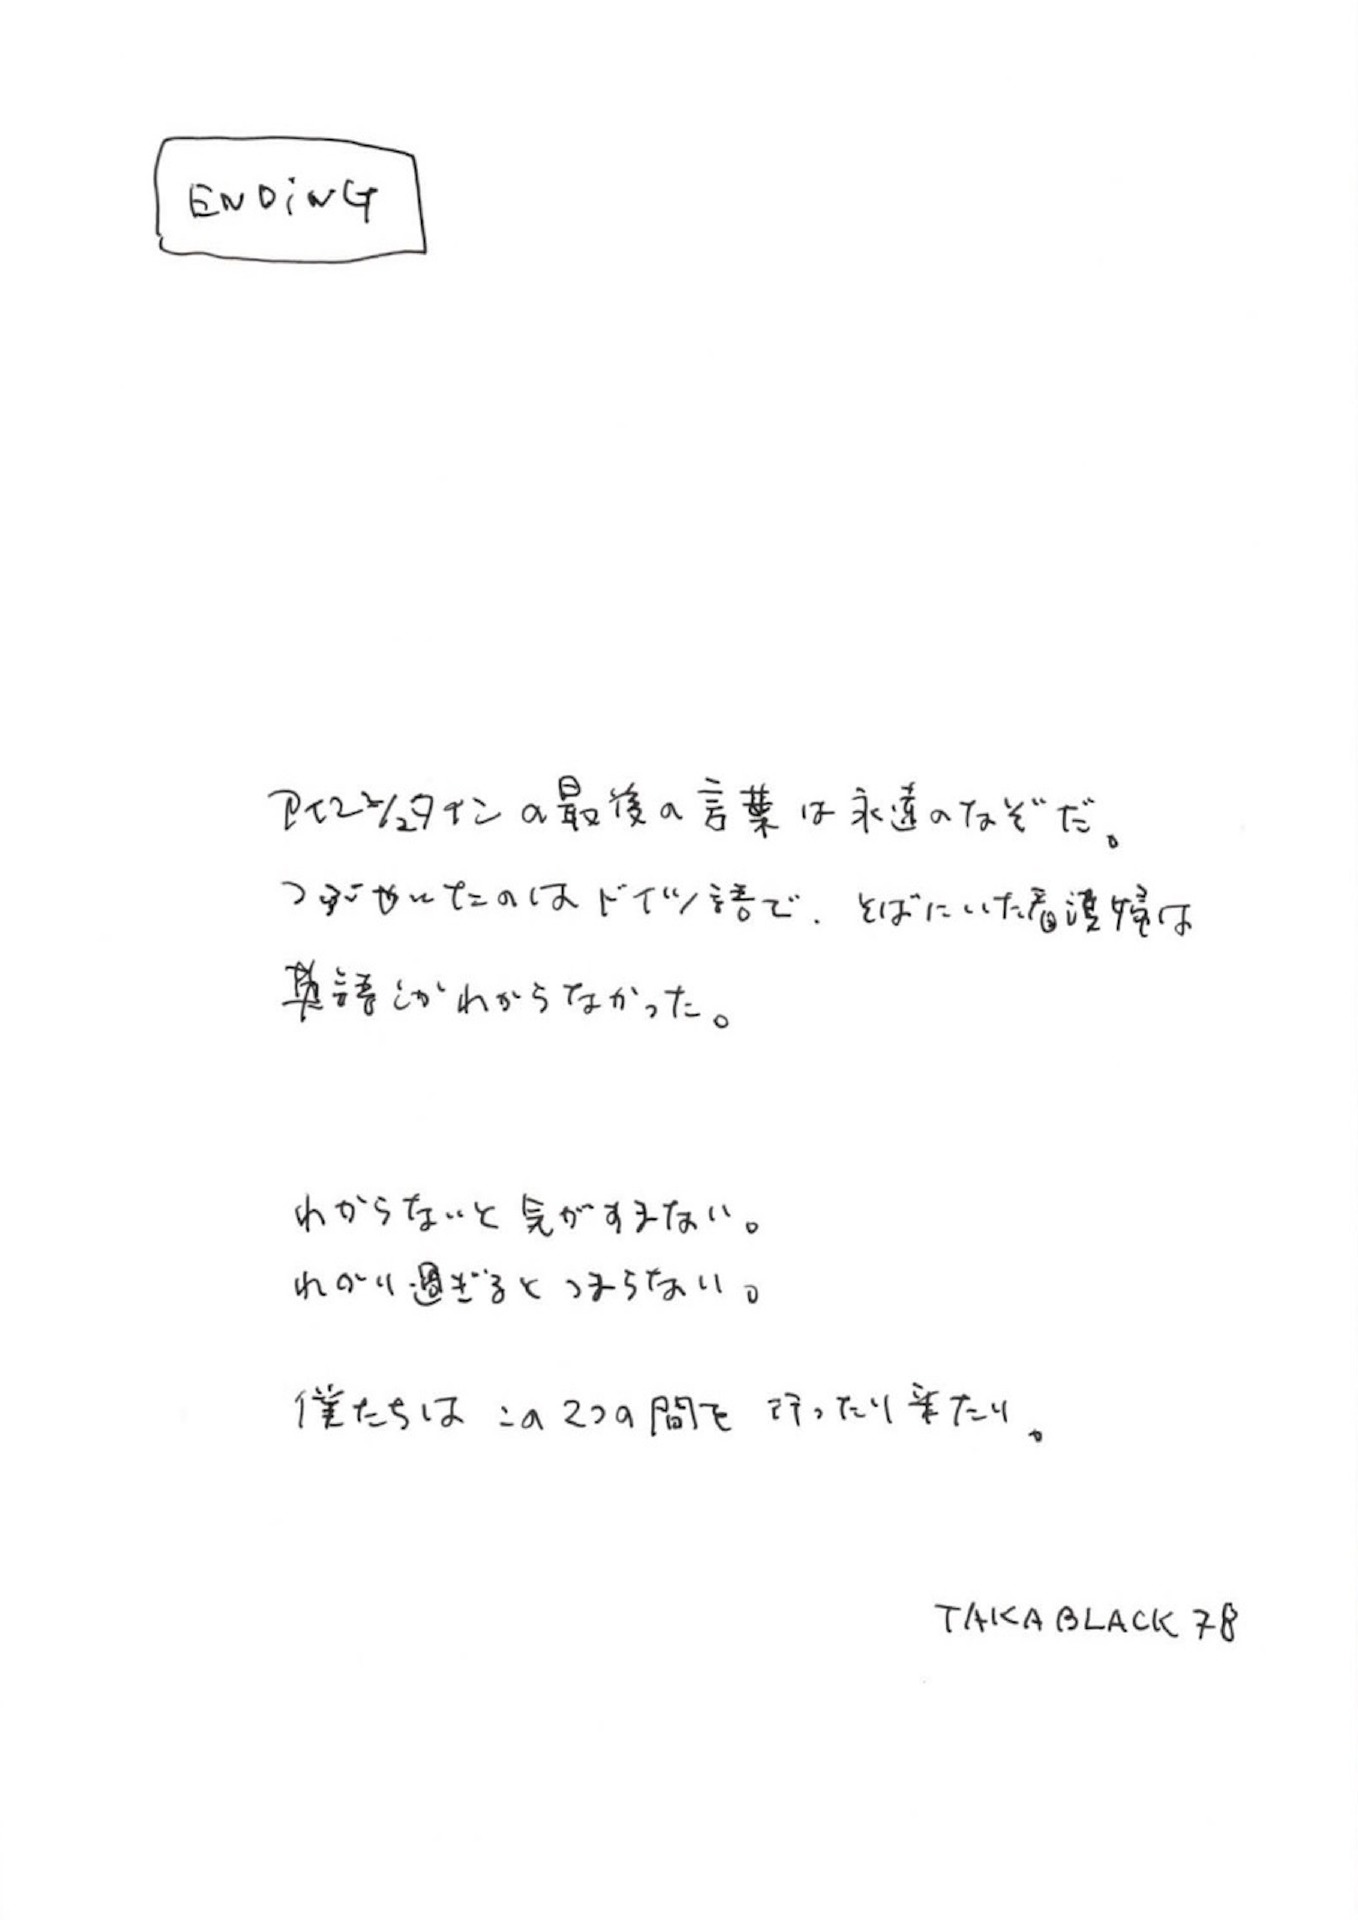 ENDiNG
アインシュタインの最後の言葉は永遠のなぞだ。
つぶやいたのはドイツ語で、そばにいた看護婦は
英語しかわからなかった。
わからないと気がすまない。
わかり過ぎるとつまらない。
僕たちは この2つの間を 行ったり来たり。
TAKA BLACK 78